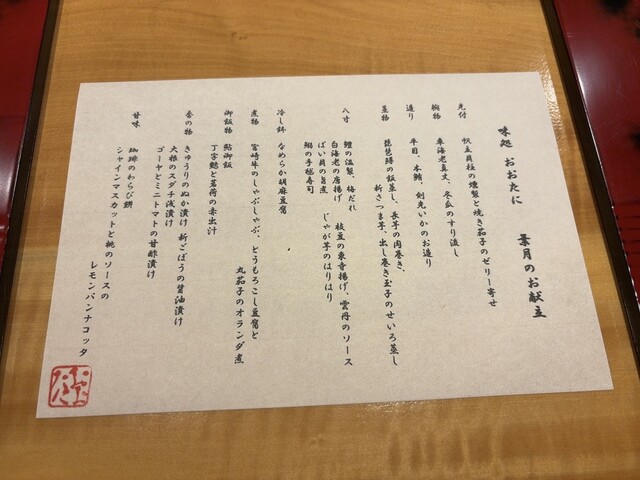 味処 おおたに 葉月のお献立
先付 帆立貝柱の燻製と焼き茄子のゼリー寄せ
椀物 車海老真丈、冬瓜のすり流し
造り 平目、本鮪、剣先いかのお造り
蒸物 琵琶鱒の飯蒸し、長芋の肉巻き、
新さつま芋、出し巻き玉子のせいろ蒸し
八寸 鱧の温製、梅だれ 枝豆の東寺揚げ、雲丹のソース
白海老の唐揚げ じゃが芋のはりはり
ばい貝の旨煮
鯛の手毬寿司
冷し鉢 なめらか胡麻豆腐
煮物 宮崎牛のしゃぶしゃぶ、とうもろこし豆腐と
丸茄子のオランダ煮
御飯物 鮎御飯
丁字麩と茗荷の赤出汁
香の物 きゅうりのぬか漬け 新ごぼうの醤油漬け
大根のスダチ浅漬け
ゴーヤとミニトマトの甘酢漬け
甘味 珈琲のわらび餅
シャインマスカットと桃のソースの
レモンパンナコッタ
おおたに